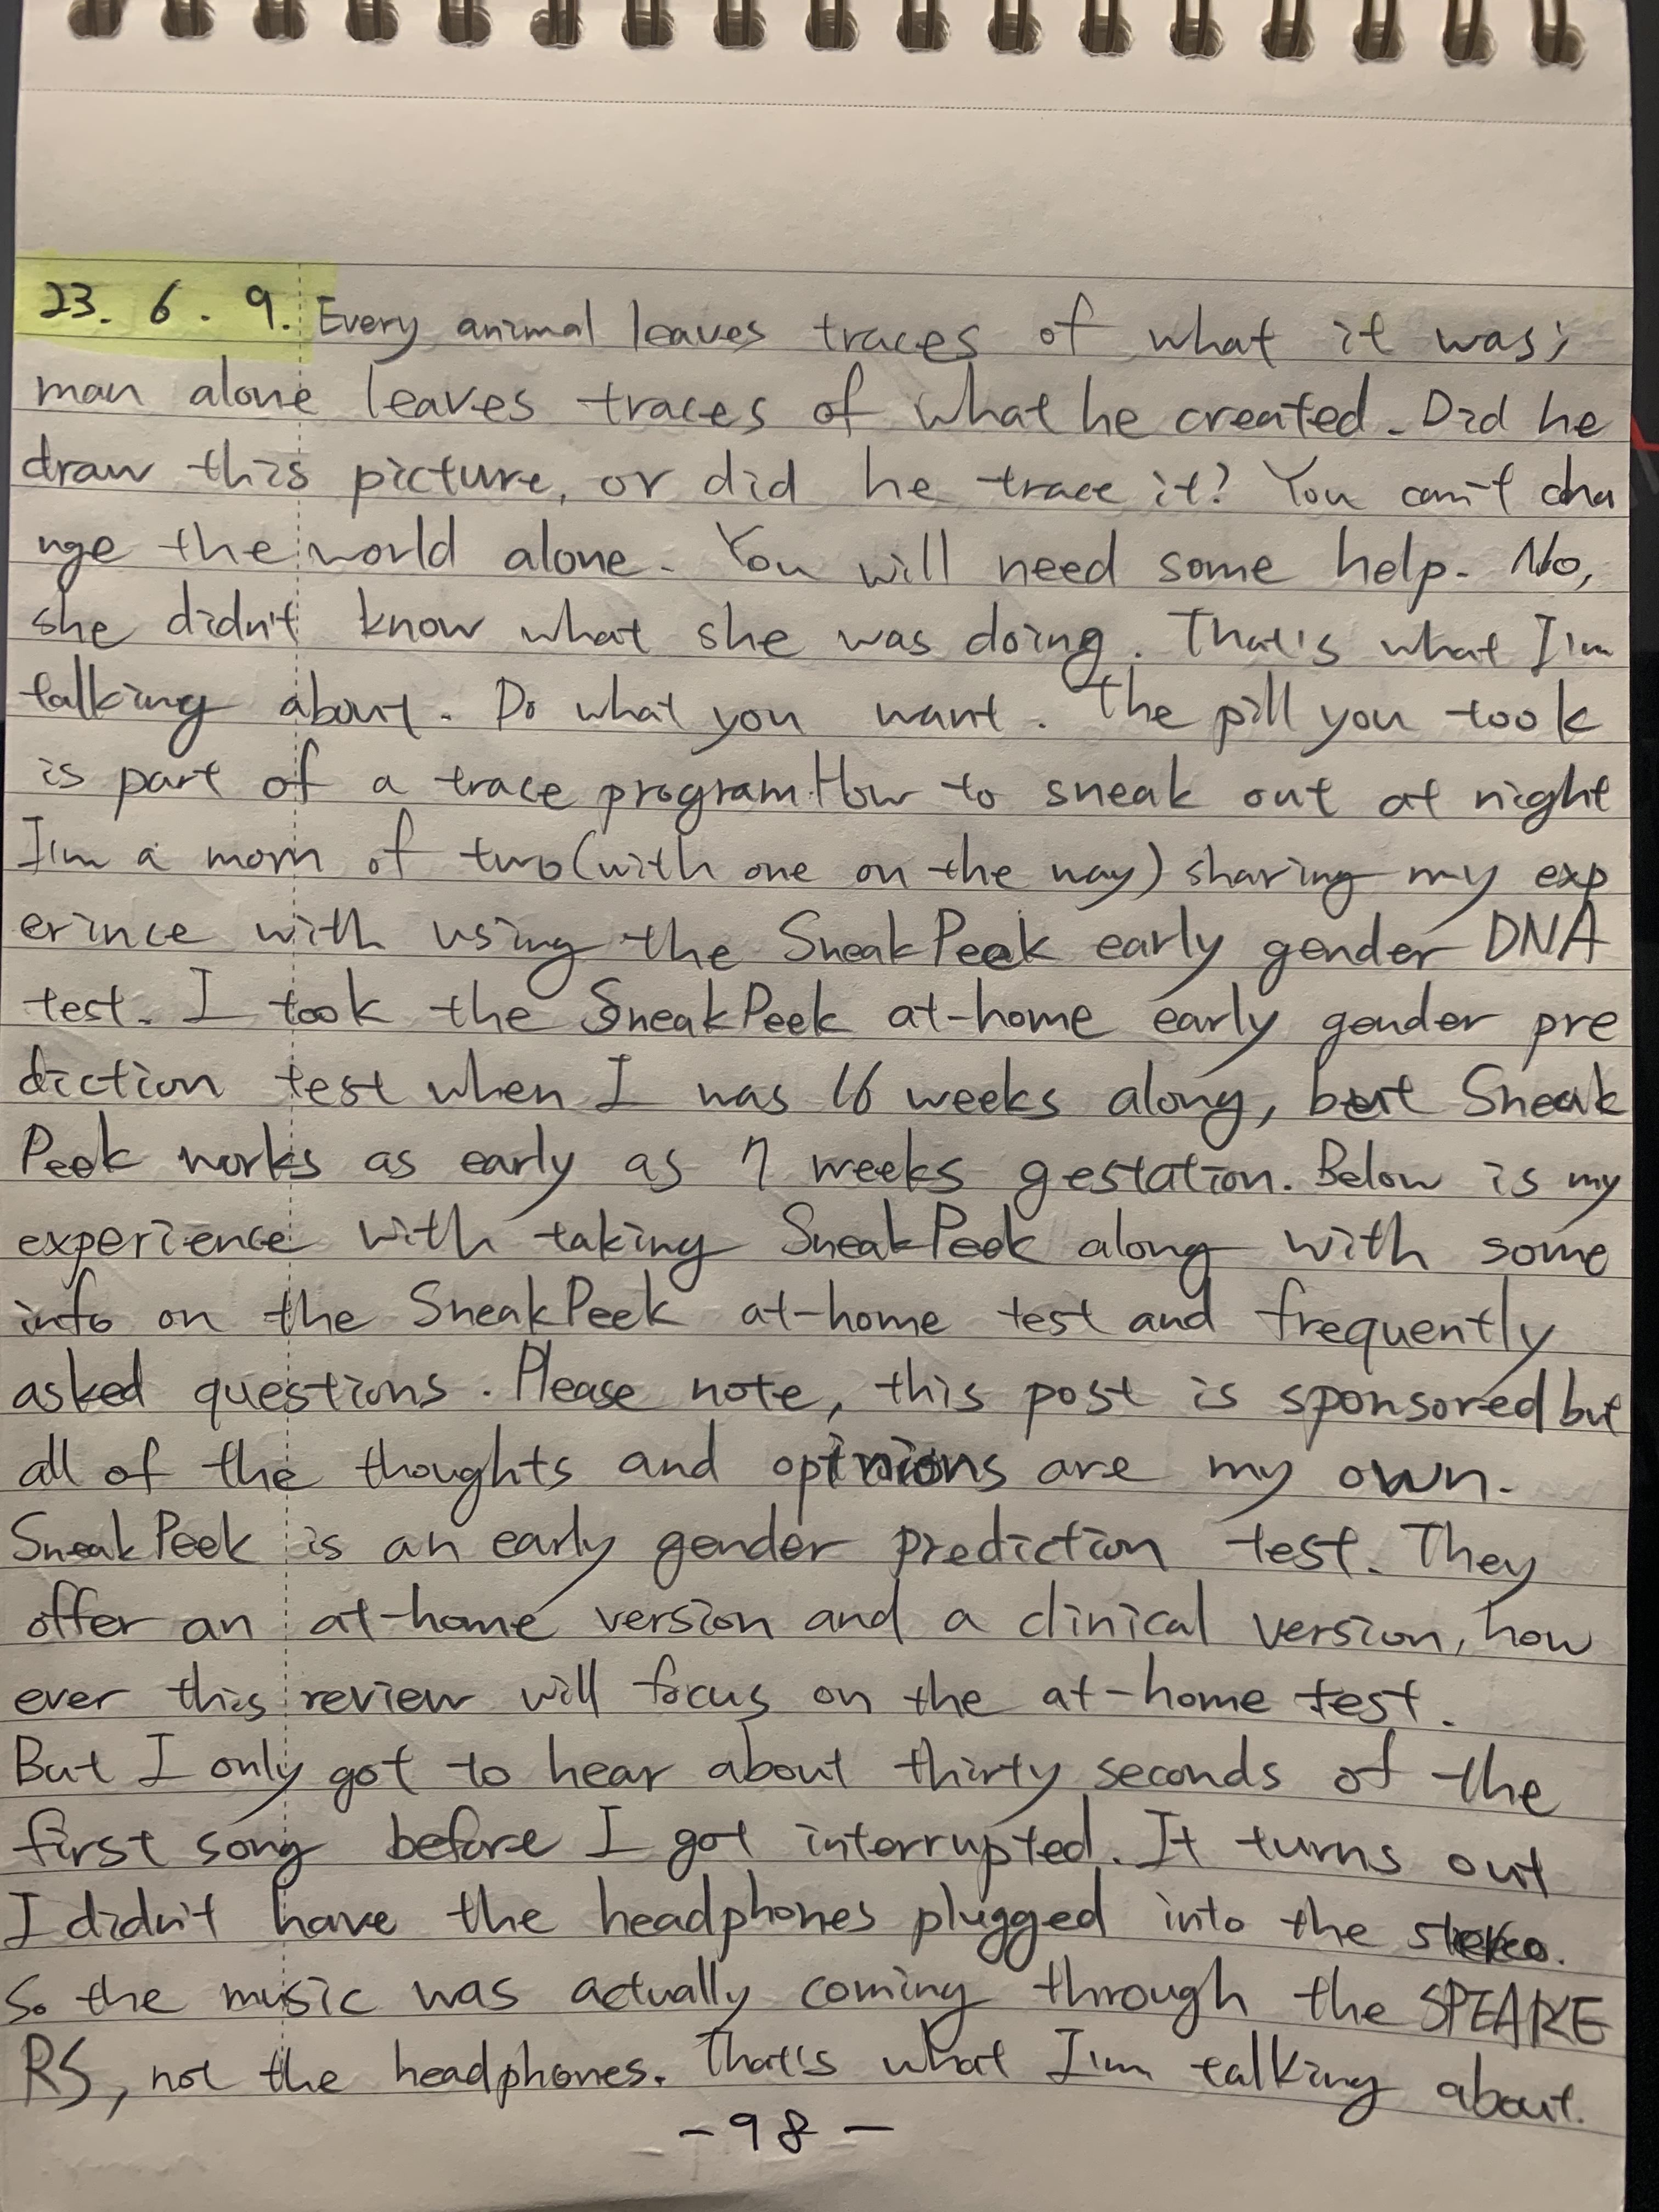 23. 6. 9. Every animal leaves traces of what it was;
man alone leaves traces of what he created. Did he
draw this picture, or did he trace it? You can't cha
nge the world alone. You will need some help. No,
she didn't know what she was doing. That's what I'm
talking about. Do what you want. The pill you took
is part of a trace program. How to sneak out at night
I'm a mom of two (with one on the way) sharing my exp
erince with using the SneakPeek early gender DNA
test. I took the SneakPeek at-home early gender pre
diction test when I was 16 weeks along, but Sneak
Peek works as early as 7 weeks gestation. Below is my
experience with taking SneakPeek along with some
info on the SneakPeek at-home test and frequently
asked questions. Please note, this post is sponsored but
all of the thoughts and opinions are my own.
SneakPeek is an early gender prediction test. They
offer an at-home version and a clinical version, how
ever this review will focus on the at-home test.
But I only got to hear about thirty seconds of the
first song before I got interrupted. It turns out
I didn't have the headphones plugged into the stereo.
So the music was actually coming through the SPEAKE
RS, not the headphones. That's what I'm talking about.
- 98 -